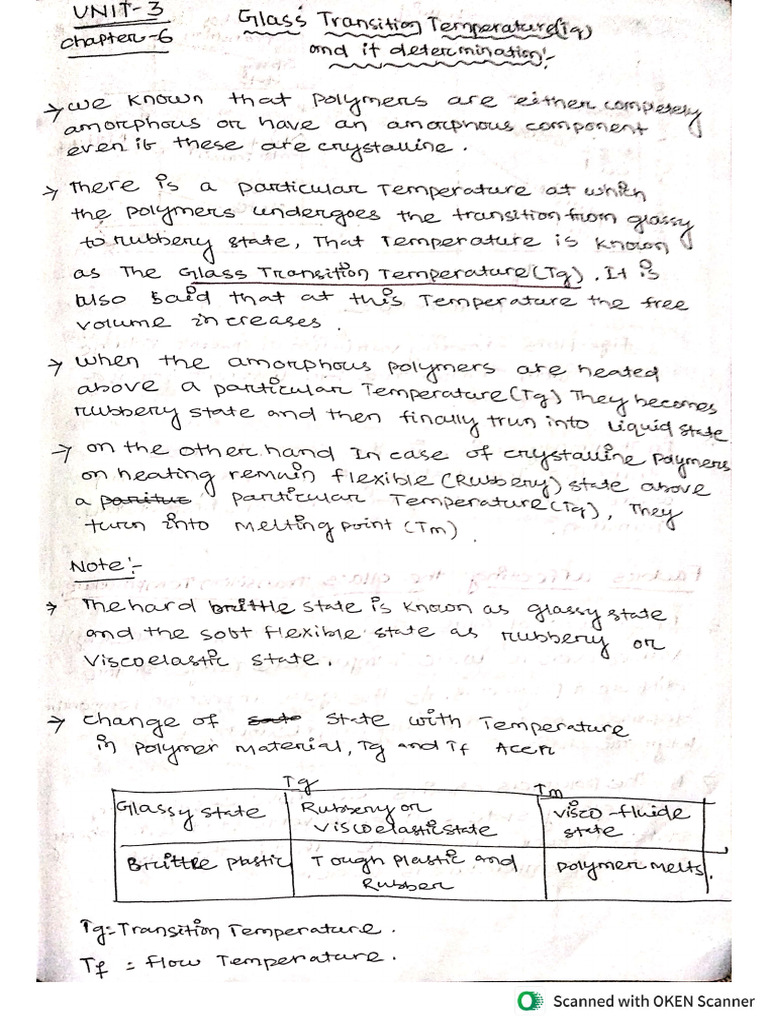 UNIT-3
Chapter-6
Glass Transition Temperature(Tg)
and it determination:-
→ we known that polymers are either competely
amorphous or have an amorphous component
even if these are crystalline.
→ There is a particular Temperature at which
the polymers undergoes the transition from glassy
to rubbery state, That Temperature is known
as The Glass Transition Temperature(Tg). It is
also said that at this Temperature the free
volume increases.
→ when the amorphous polymers are heated
above a particular Temperature(Tg) They becomes
rubbery state and then finally trun into Liquid state
→ on the other hand In case of crystalline polymers
on heating remain flexible (Rubbery) state above
a particular Temperature(Tg), They
turn into melting point (Tm)
Note:-
→ The hard brittle state is known as glassy state
and the soft flexible state as rubbery or
viscoelastic state.
→ change of state with Temperature
in polymer material, Tg and Tf
Tg Tm
Glassy state Rubbery or visco-fluide
viscoelastic state state.
Brittle plastic Tough plastic and polymer melts.
Rubber
Tg=Transition Temperature.
Tf = flow Temperature.
Scanned with OKEN Scanner